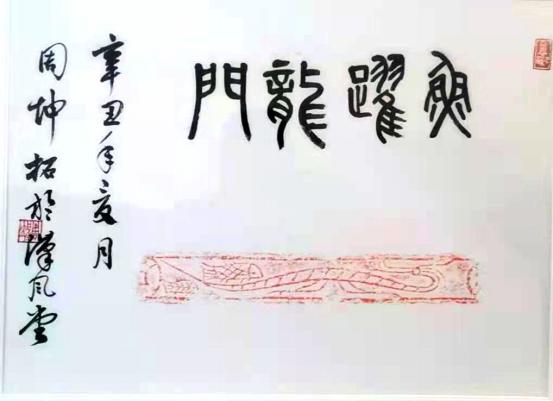 魚躍龍門
辛丑年夏月
周坤拓於漢風堂